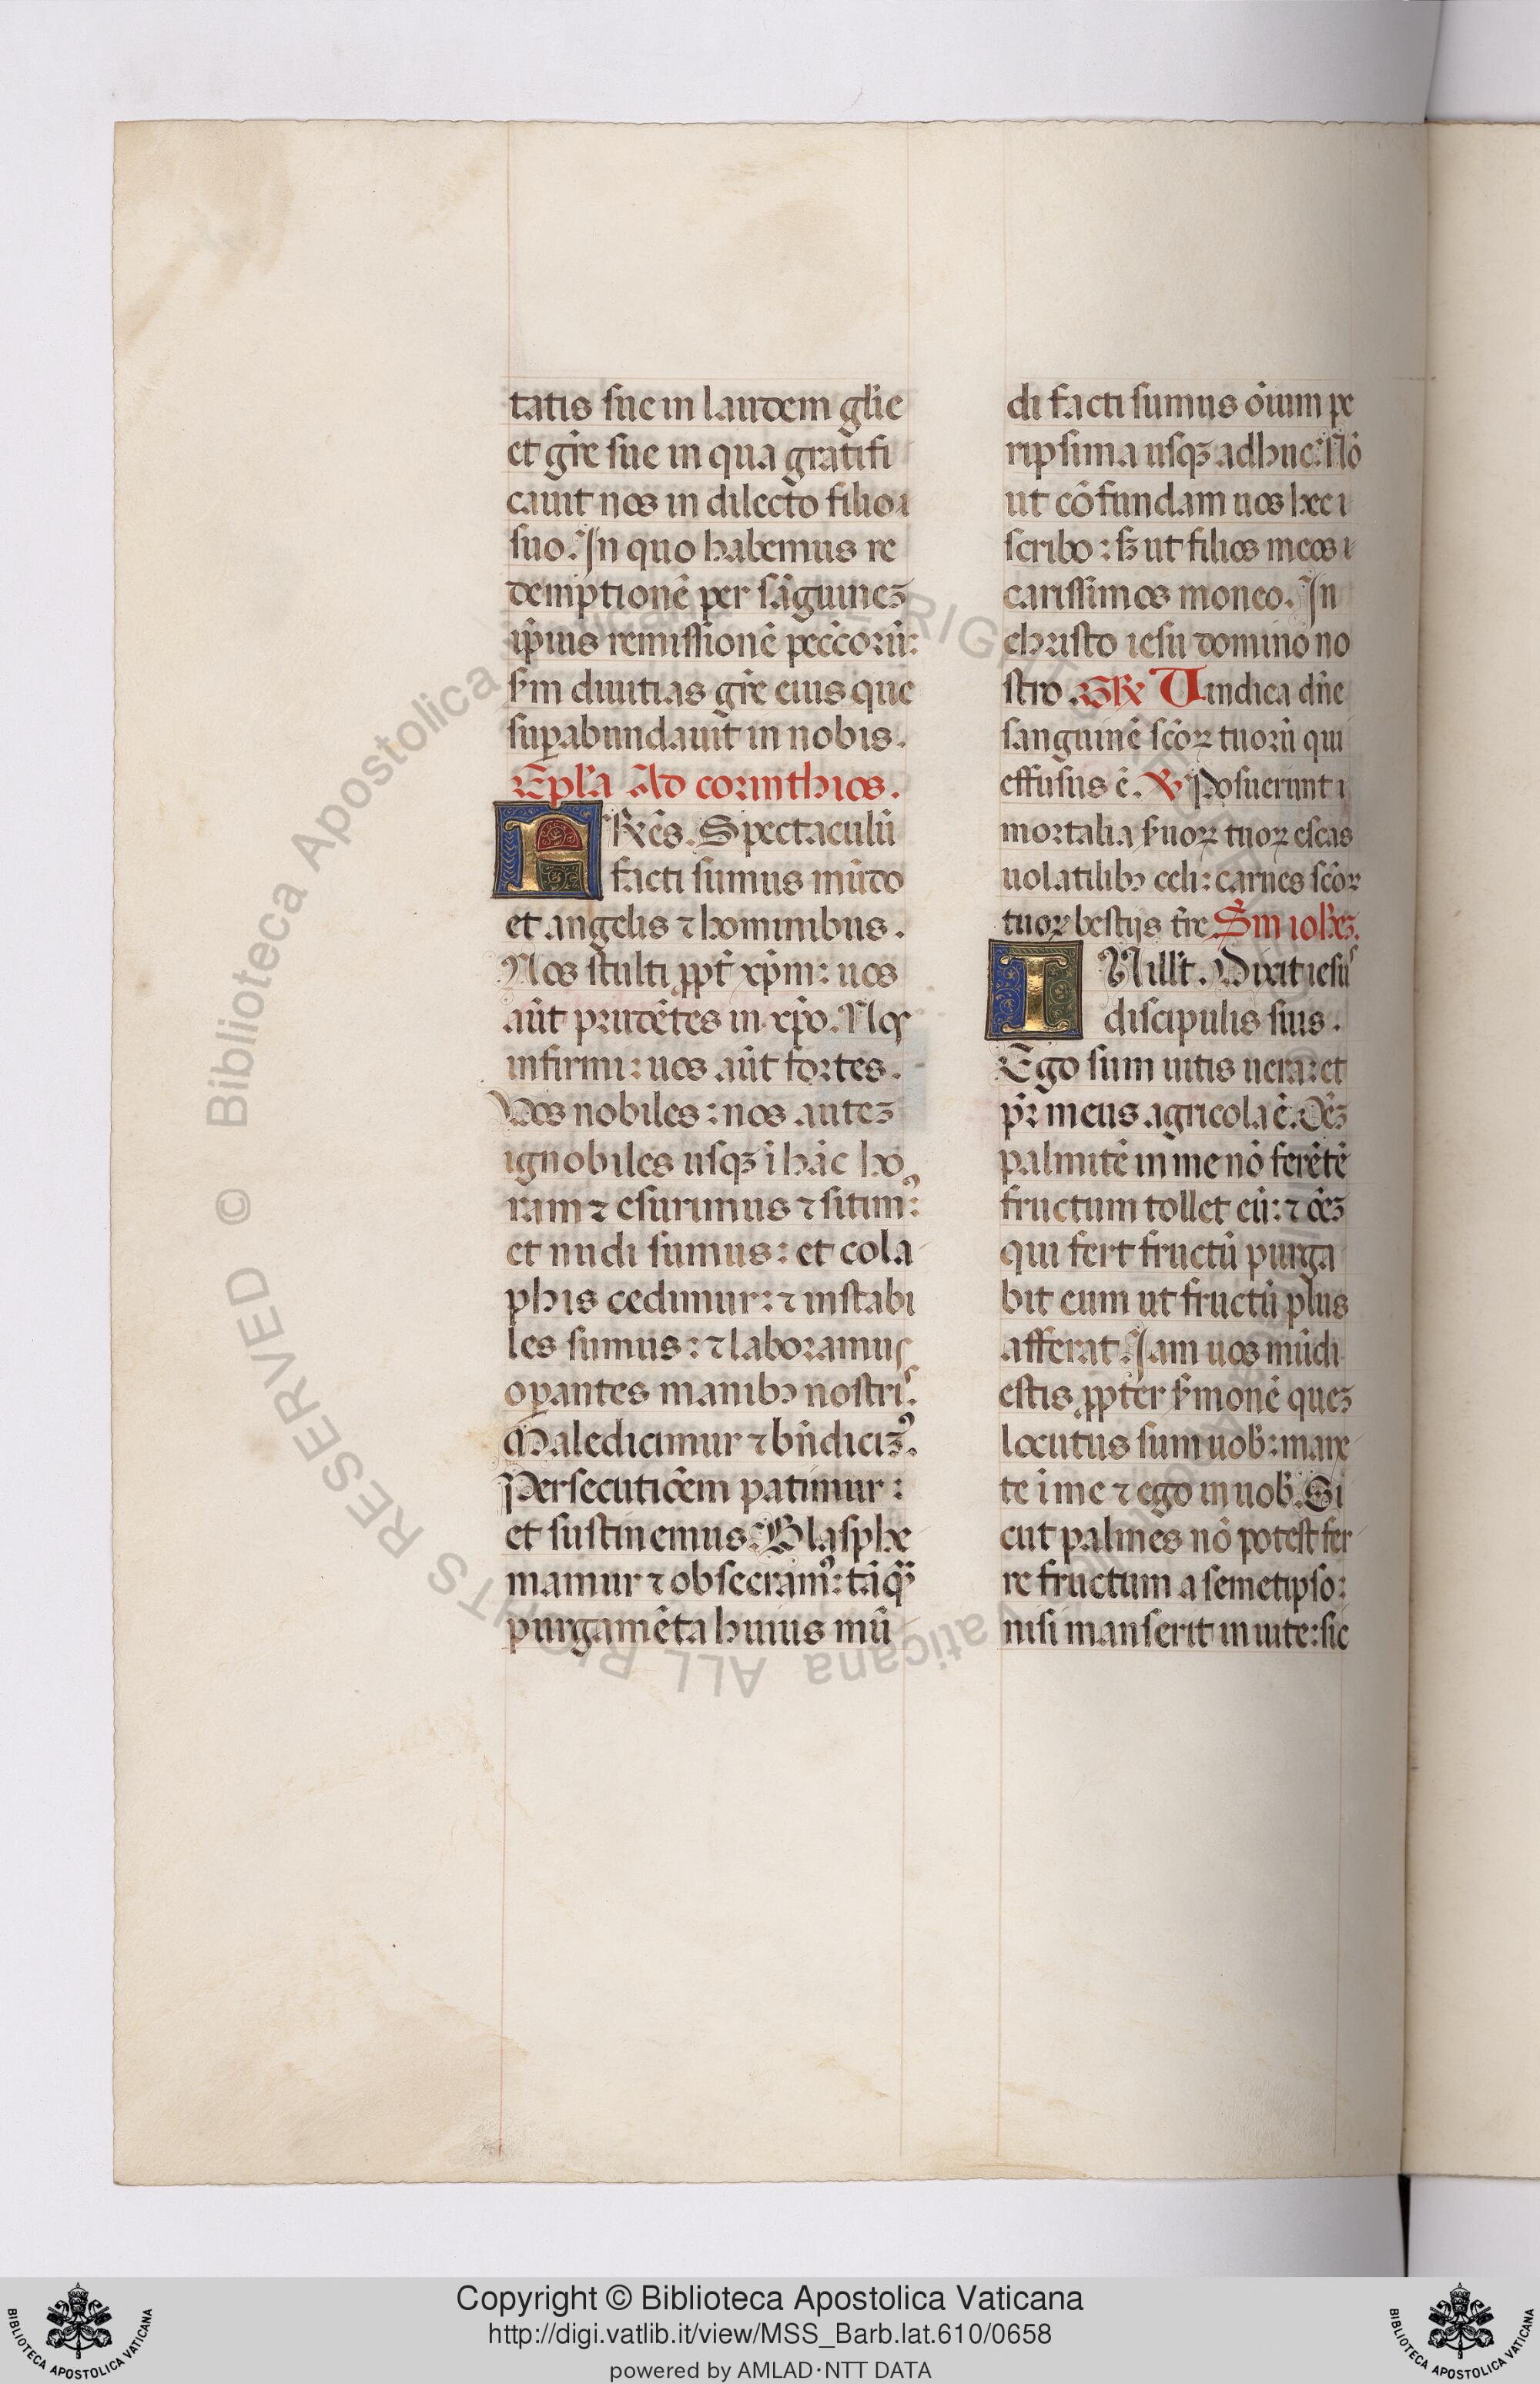 tatis sue in laudem gl̃ie
et gr̃e sue in qua gratifi
cauit nos in dilecto filio
suo. In quo habemus re
demptionẽ per sãguineꝫ
ip̃ius remissionẽ pecc̃orũ:
ẜm diuitias gr̃e eius que
suꝑabundauit in nobis.
Epl̃a Ad corinthios.
FRẽs. Spectaculũ
facti sumus mũdo
et angelis ⁊ hominibus.
Nos stulti ꝓpt̃ xp̃m: uos
aũt prudẽtes in xp̃o. Nos
infirmi: uos aũt fortes.
Uos nobiles: nos auteꝫ
ignobiles usqꝫ ĩ hãc ho
ram ⁊ esurimus ⁊ sitimꝰ:
et nudi sumus: et cola
phis cedimur: ⁊ instabi
les sumus: ⁊ laboramus
oꝑantes manibꝫ nostris.
Maledicimur ⁊ bñdicimꝰ.
Persecutiõem patimur:
et sustinemus. Blasphe
mamur ⁊ obsecramꝰ: tãqᷓ
purgamẽta huius mũ
di facti sumus õium pe
ripsima usqꝫ adhuc. Nõ
ut cõfundam uos hec
scribo: sꝫ ut filios meos
carissimos moneo. In
christo iesu domino no
stro. Gr̃e Uindica dñe
sanguinẽ sc̃oꝝ tuorũ qui
effusus ẽ. ℣ Posuerunt
mortalia ẜuoꝝ tuoꝝ escas
uolatilibꝫ celi: carnes sc̃oꝝ
tuoꝝ bestijs tr̃e. Sm̃ ioh̃eꝫ.
IN ill't. Dixit iesus
discipulis suis.
Ego sum uitis uera: et
pr̃ meus agricola ẽ. Oẽꝫ
palmitẽ in me nõ ferẽtẽ
fructum tollet eũ: ⁊ oẽꝫ
qui fert fructũ purga
bit eum ut fructũ plus
afferat. Iam uos mũdi
estis ꝓpter ẜmonẽ queꝫ
locutus sum uob̃: mane
te ĩ me ⁊ ego in uob̃. Si
cut palmes nõ potest fer
re fructum a semetipso:
nisi manserit in uite: sic
© Biblioteca Apostolica Vaticana ALL RIGHTS RESERVED
Copyright © Biblioteca Apostolica Vaticana
http://digi.vatlib.it/view/MSS_Barb.lat.610/0658
powered by AMLAD·NTT DATA
BIBLIOTECA APOSTOLICA VATICANA
BIBLIOTECA APOSTOLICA VATICANA